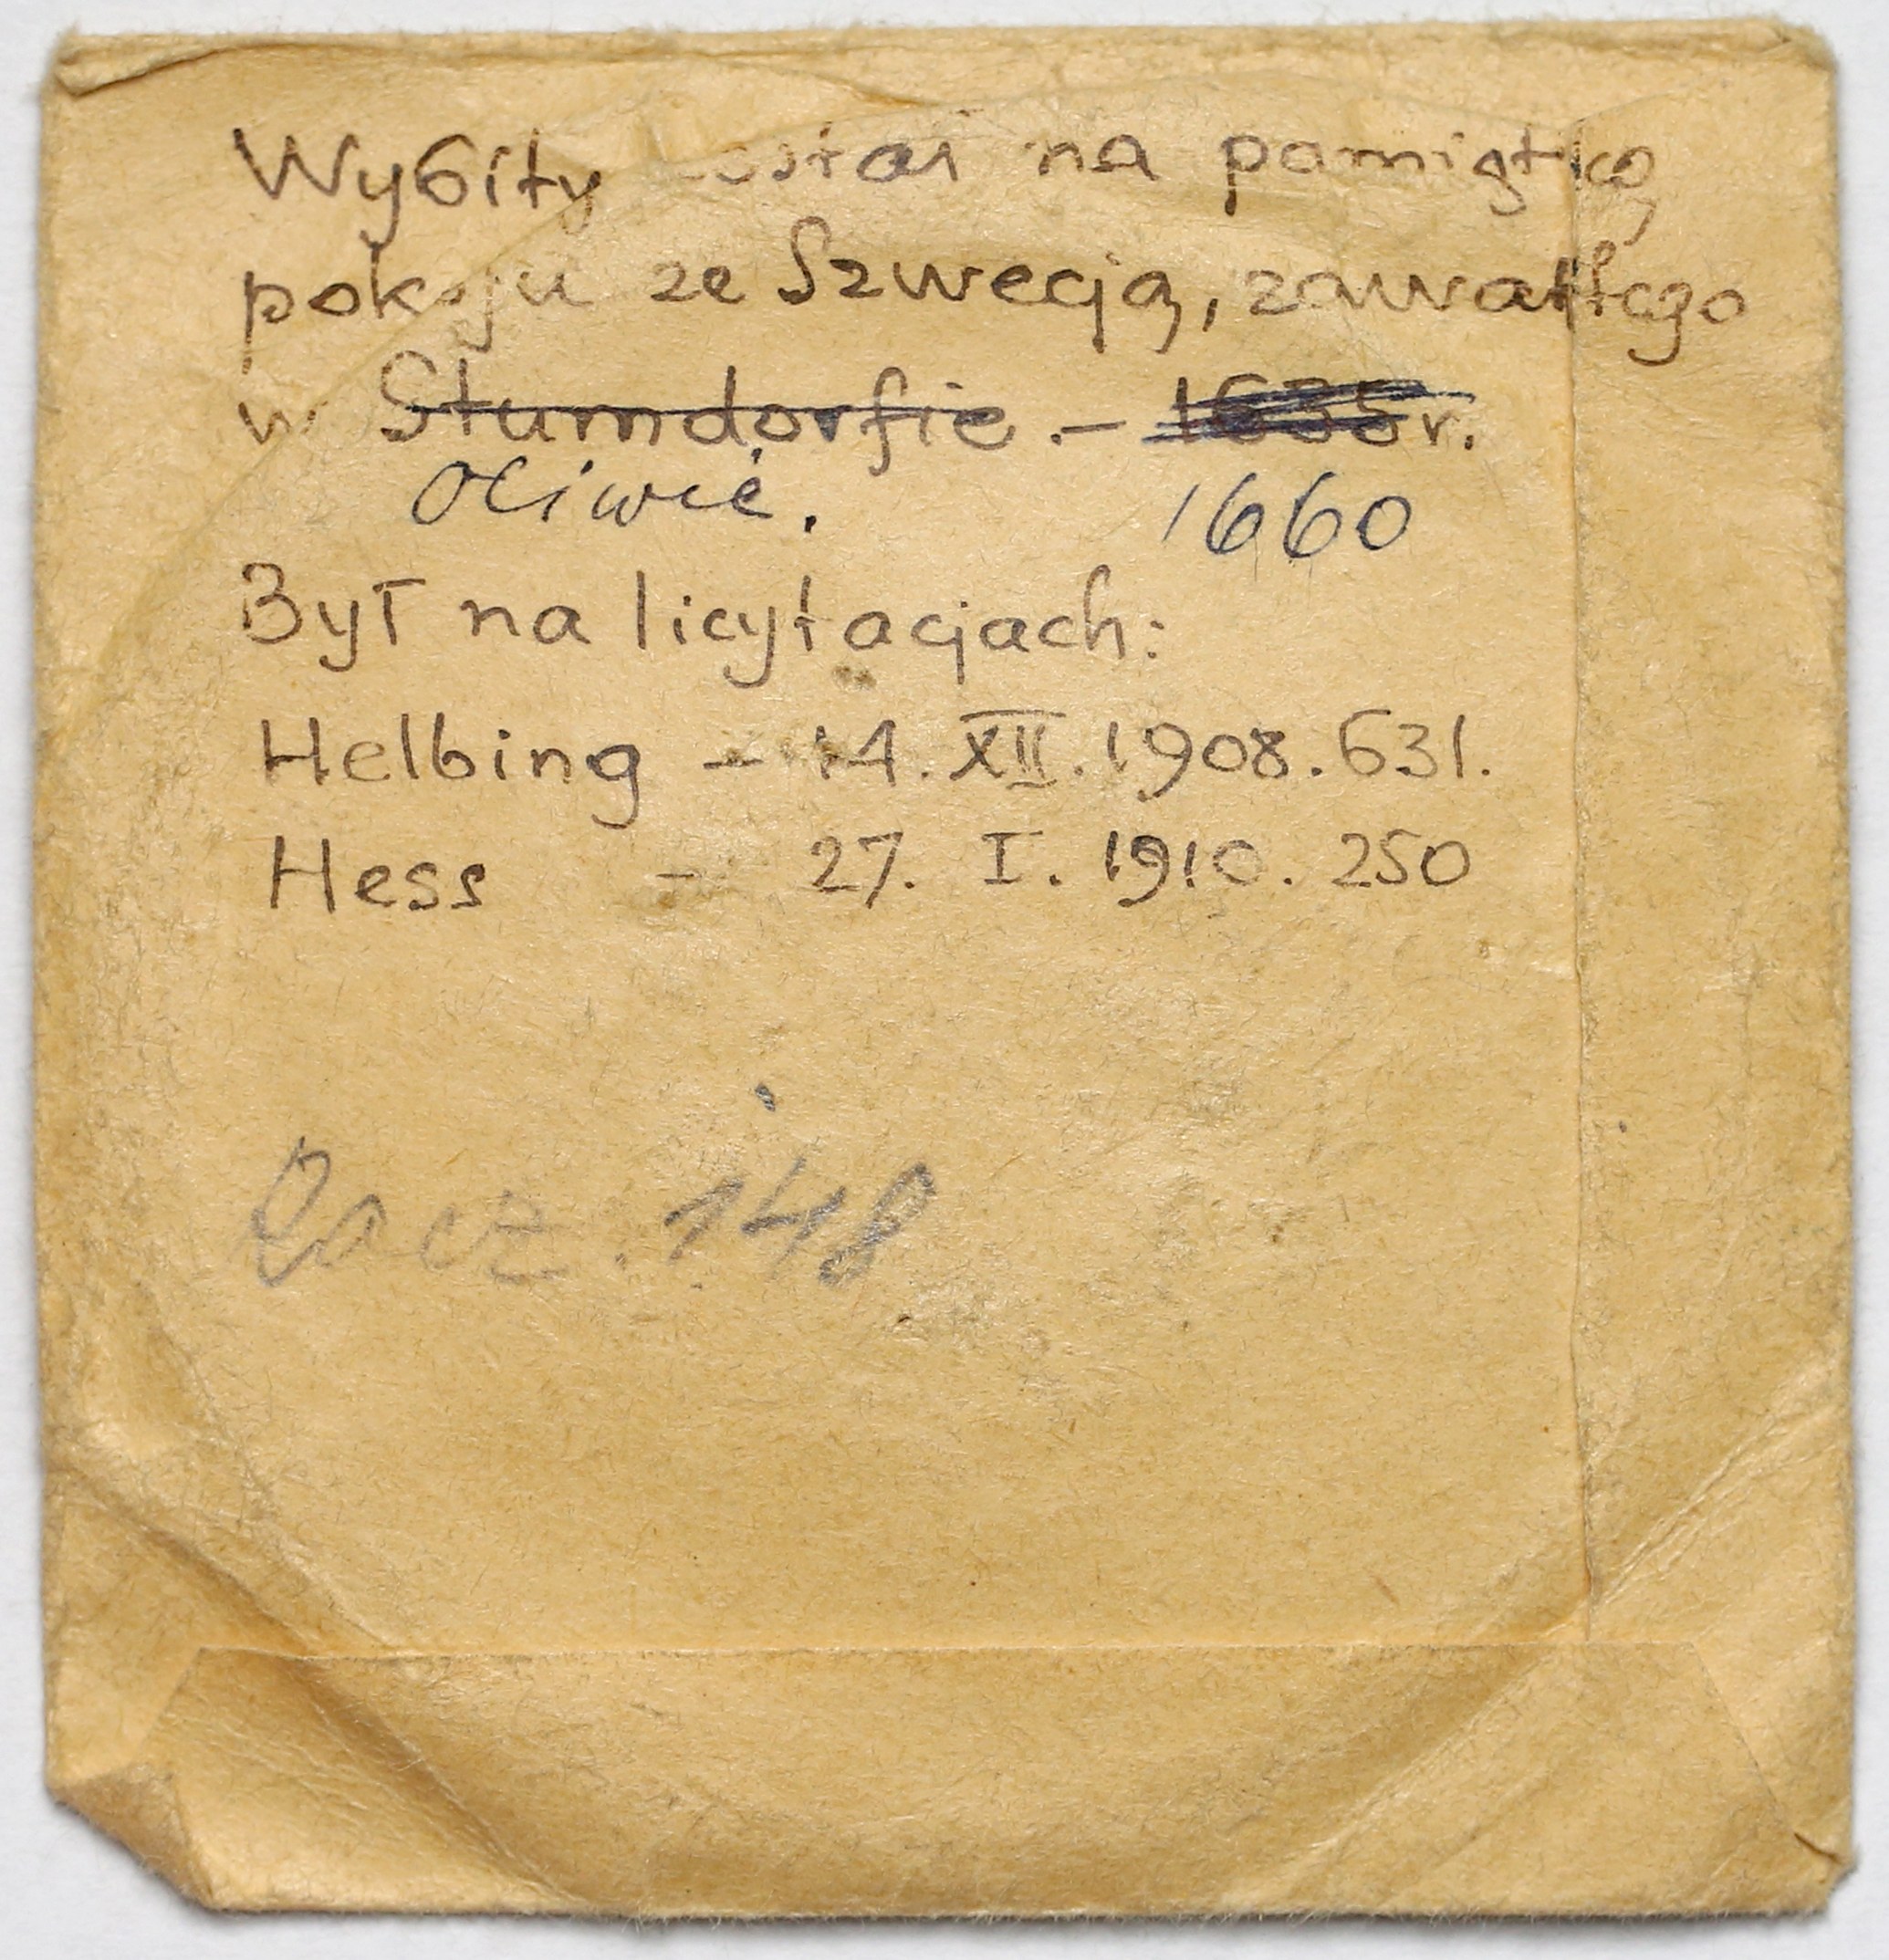 Wybity został na pamiątkę
pokoju ze Szwecją, zawartego
w Stumdorfie. – 1635 r.
Oliwie. 1660
Był na licytacjach:
Helbing – 14. XII. 1908. 631.
Hess – 27. I. 1910. 250
Racz. 148